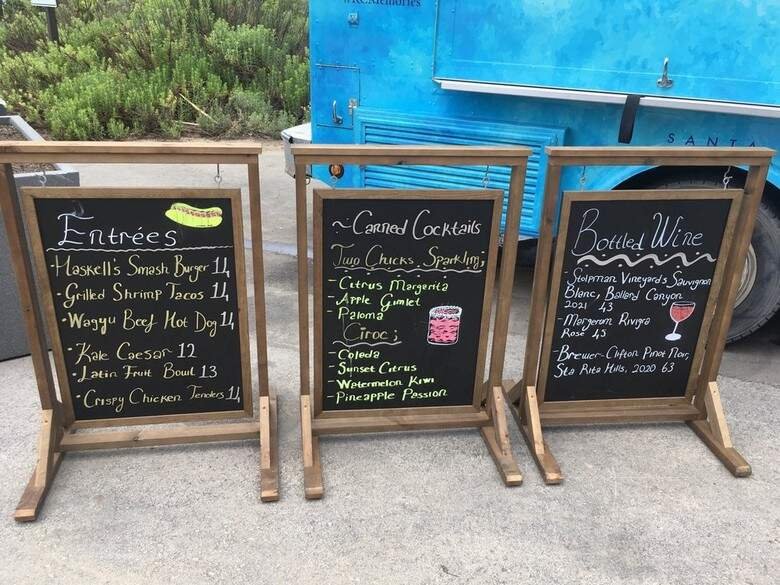 #RCMemories
SANTA
Entrées
-Haskell's Smash Burger 14
-Grilled Shrimp Tacos 14
•Wagyu Beef Hot Dog 14
•Kale Caesar 12
-Latin Fruit Bowl 13
•Crispy Chicken Tenders 14
~Canned Cocktails
Two Chicks Sparkling;
-Citrus Margarita
-Apple Gimlet
-Paloma
Ciroc;
-Colada
-Sunset Citrus
-Watermelon Kiwi
-Pineapple Passion
Bottled Wine
Stolpman Vineyards Sauvignon
Blanc, Ballard Canyon
2021 43
-Margerum Riviera
Rosé 45
-Brewer-Clifton Pinot Noir,
Sta Rita Hills, 2020 63